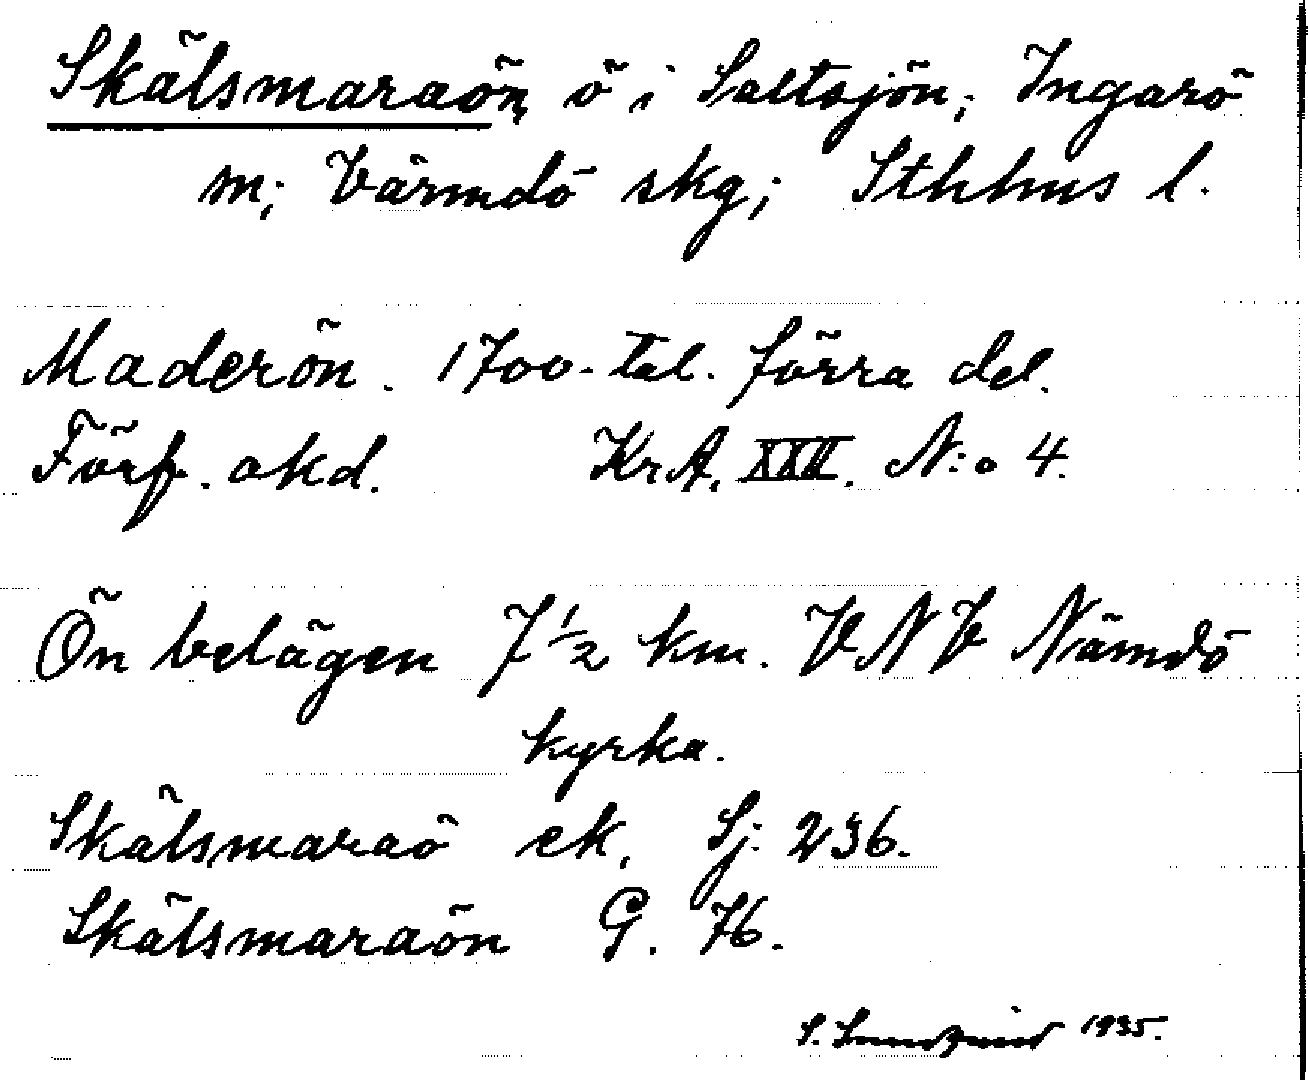 Skälsmaraön, ö i Saltsjön; Ingarö
m; Värmdö skg; Sthlms l.
Maderön. 1700-tal. förra del.
Förf. okd. KrA. XXII. N:o 4.
Ön belägen 7 1/2 km. VNV Nämdö
kyrka.
Skälsmaraö ek. Sj. 236.
Skälsmaraön G. 76.
S. Lundqvist 1935.